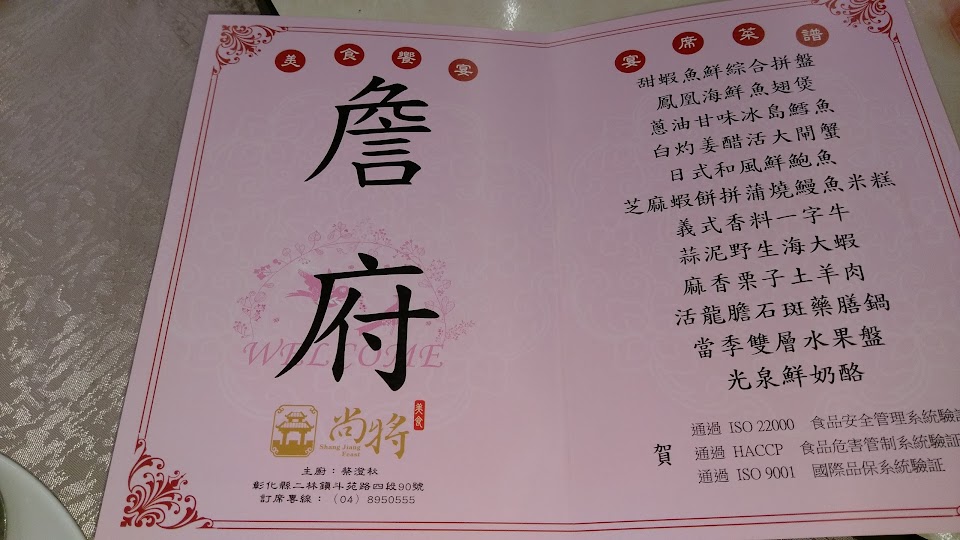 美食饗宴
詹府
WELCOME
尚將
美食
Shang Jiang
Feast
主廚：蔡澄秋
彰化縣二林鎮斗苑路四段90號
訂席專線：（04）8950555
宴席菜譜
甜蝦魚鮮綜合拼盤
鳳凰海鮮魚翅煲
蔥油甘味冰島鱈魚
白灼姜醋活大閘蟹
日式和風鮮鮑魚
芝麻蝦餅拼蒲燒鰻魚米糕
義式香料一字牛
蒜泥野生海大蝦
麻香栗子土羊肉
活龍膽石斑藥膳鍋
當季雙層水果盤
光泉鮮奶酪
賀
通過 ISO 22000 食品安全管理系統驗證
通過 HACCP 食品危害管制系統驗證
通過 ISO 9001 國際品保系統驗証